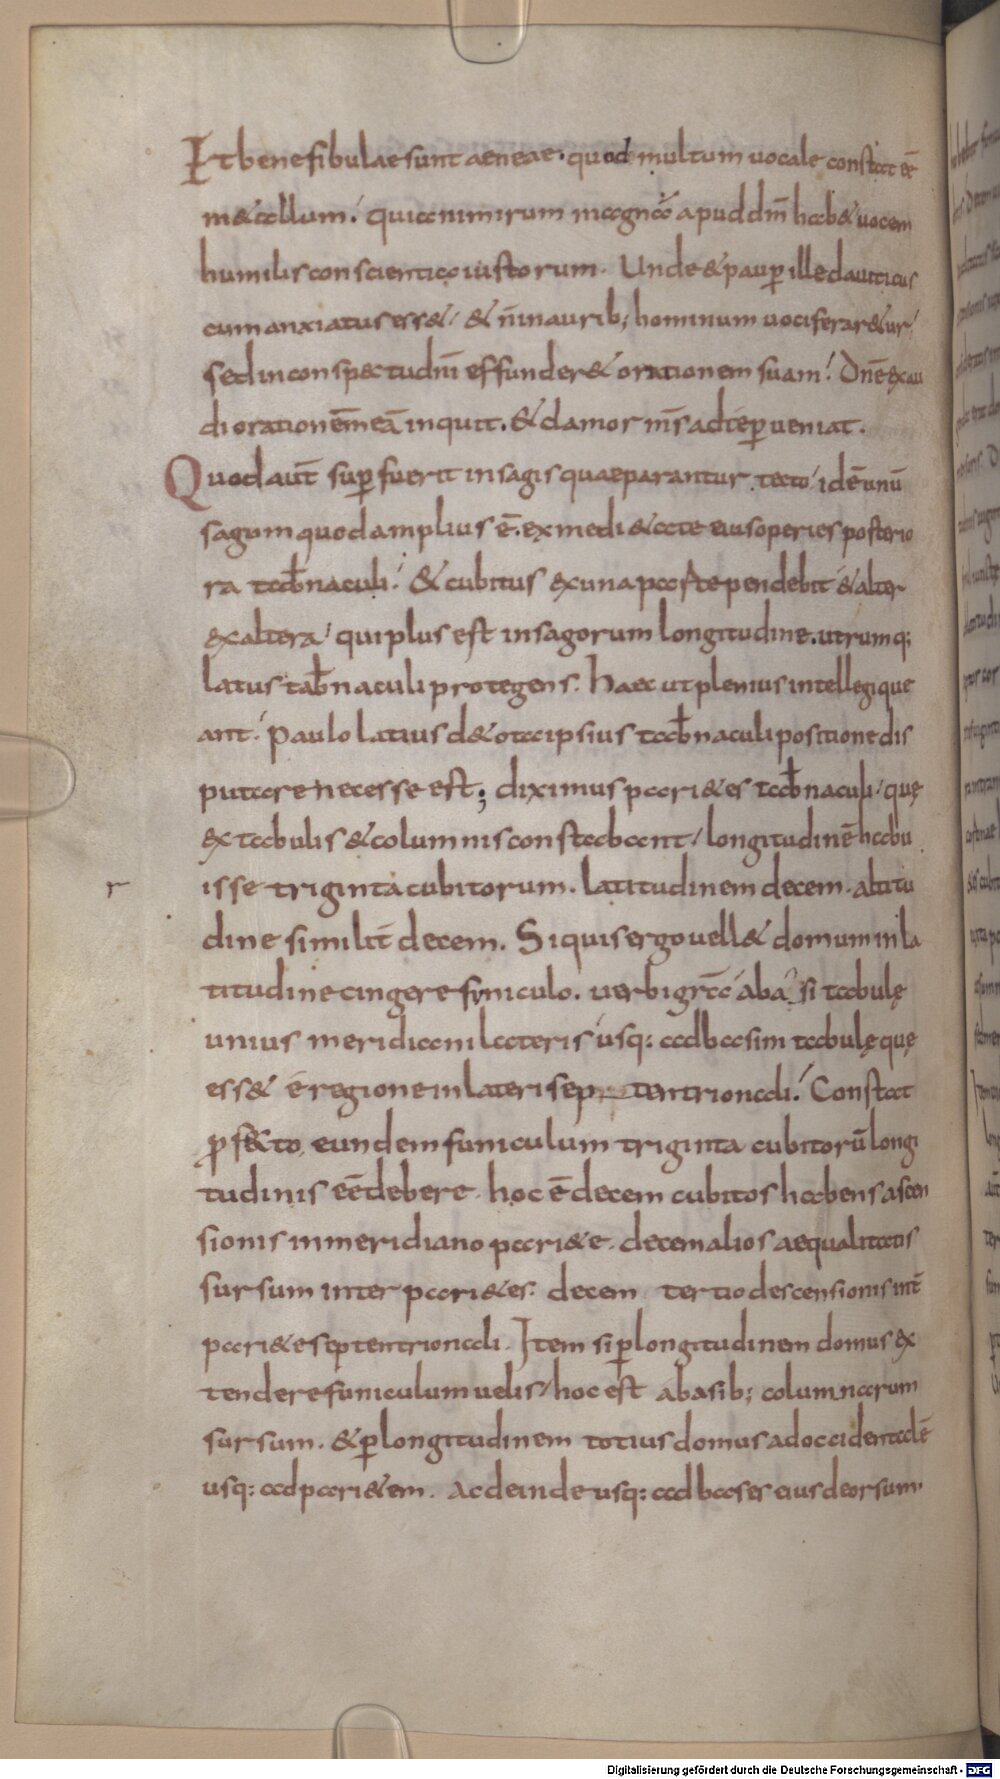 Et bene fibulae sunt aeneae. quod multum uocale constat eē
m&allum. quia nimirum magnā apud dm̄ hab& uocem
humilis conscientia iustorum. Unde & paup̄ ille dauiticus
cum anxiatus ess& & n̄ in aurib; hominum uociferar&ur
sed in consp&tu dn̄i effunder& orationem suam. Dn̄e exau
di orationē meā inquit. & clamor m̄s ad tē p̄ueniat.
Quod aut̄ sup̄fuerit in sagis quae parantur tecto id ē unū
sagum quod amplius ē. ex medi&ate eius operies posterio
ra tab̄naculi. & cubitus ex una parte pendebit & alter
ex altera qui plus est in sagorum longitudine. utrumq;
latus tab̄naculi protegens. Haec ut plenius intellegi que
ant. Paulo latius de tota ipsius tab̄naculi positione dis
putare necesse est; diximus pari&es tab̄naculi, quę
ex tabulis & columnis constabant, longitudinē habu
isse triginta cubitorum. latitudinem decem. altitu
dine similit̄ decem. Si quis ergo uell& domum in la
titudine cingere funiculo. uerbi grā á basi tabulę
unius meridiani lateris usq: ad basim tabulę quę
ess& é regione in lateri septentrionali. Constat
ꝓfecto eundem funiculum triginta cubitorū longi
tudinis eē debere. hoc ē decem cubitos habens ascen
sionis in meridiano pari&e. decem alios aequalitatis
sursum inter pari&es. decem tertio descensionis int̄
pari&e septentrionali. Item si p̄ longitudinem domus ex
tendere funiculum uelis, hoc est á basib; columnarum
sursum. & p̄ longitudinem totius domus ad occidentalē
usq: ad pari&em. Ac deinde usq: ad bases eius deorsum.
r
Digitalisierung gefördert durch die Deutsche Forschungsgemeinschaft - DFG